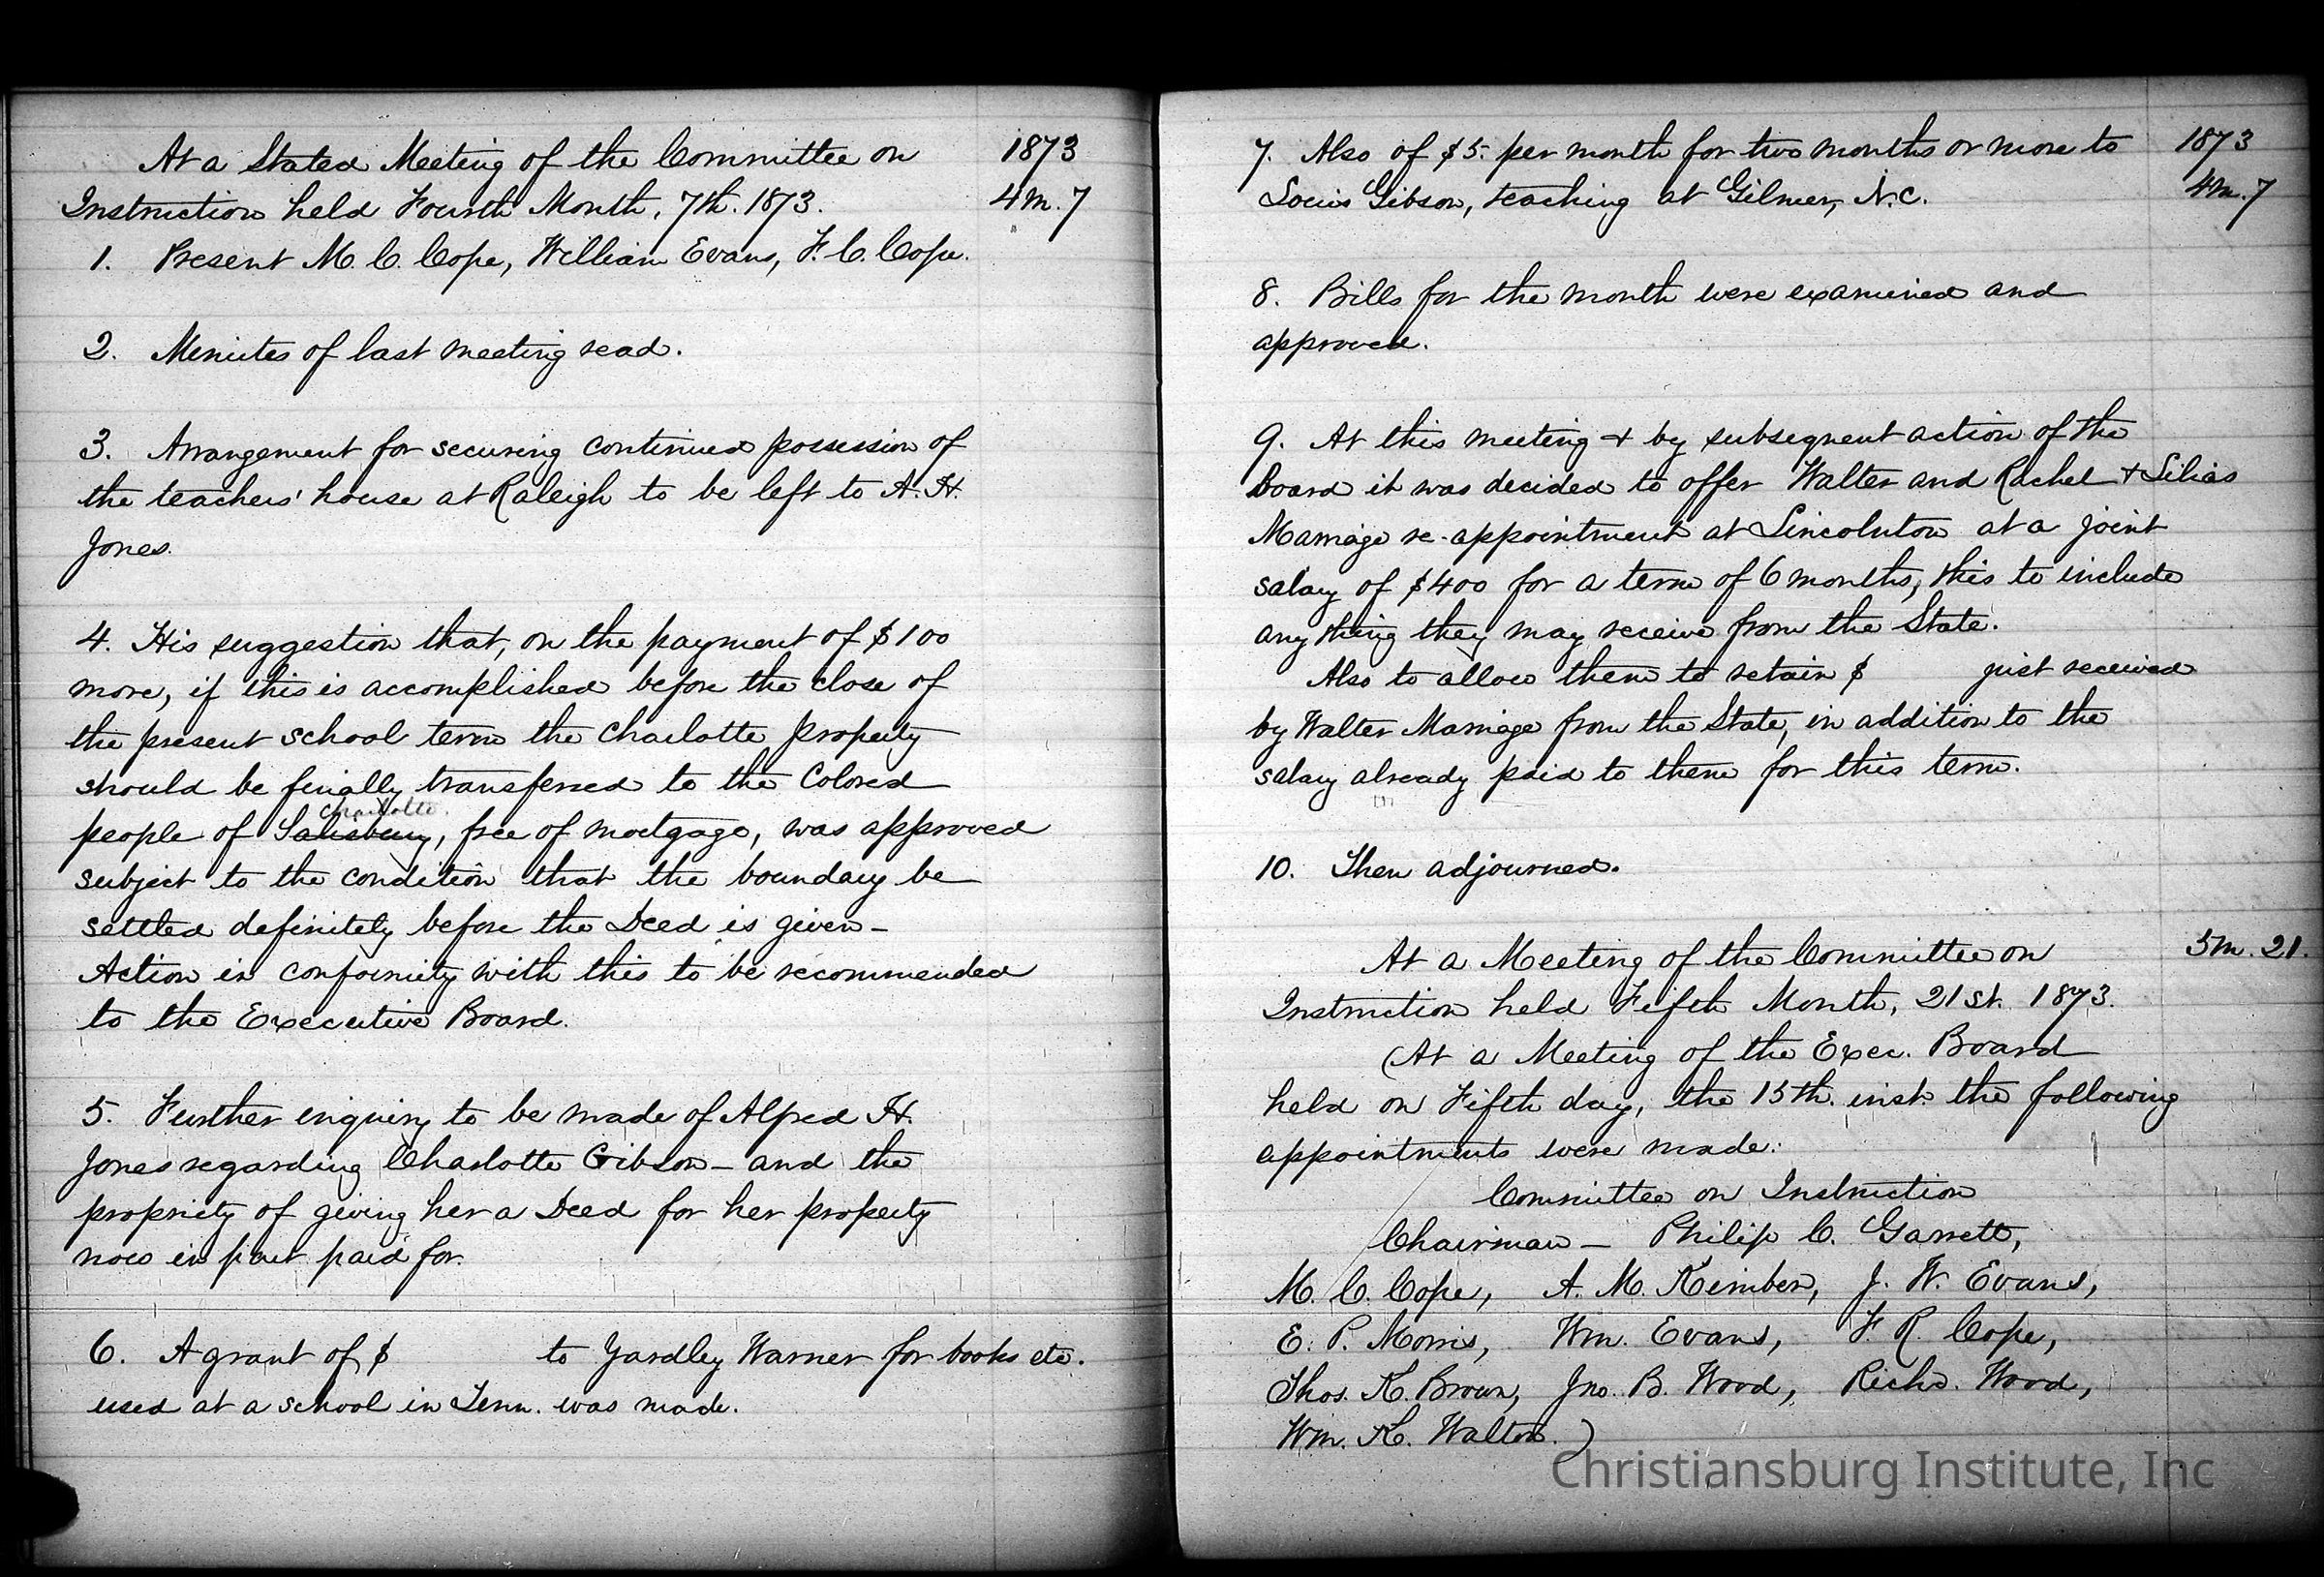 At a Stated Meeting of the Committee on
Instruction held Fourth Month, 7th. 1873.
1873
4m. 7
1. Present M. C. Cope, William Evans, F. C. Cope.
2. Minutes of last meeting read.
3. Arrangement for securing continued possession of
the teachers' house at Raleigh to be left to A. H.
Jones.
4. His suggestion that, on the payment of $100
more, if this is accomplished before the close of
the present school term the Charlotte property
should be finally transferred to the Colored
Charlotte.
people of Salisbury, free of mortgage, was approved
subject to the condition that the boundary be
settled definitely before the Deed is given—
Action in conformity with this to be recommended
to the Executive Board.
5. Further enquiry to be made of Alfred H.
Jones regarding Charlotte Gibson— and the
propriety of giving her a Deed for her property
now in part paid for.
6. A grant of $ to Yardley Warner for books etc.
used at a school in Tenn. was made.
7. Also of $5. per month for two months or more to
Louis Gibson, teaching at Gilmer, N.C.
1873
4m. 7
8. Bills for the month were examined and
approved.
9. At this meeting & by subsequent action of the
Board it was decided to offer Walter and Rachel & Silias
Marriage re-appointment at Lincolnton at a joint
salary of $400 for a term of 6 months, this to include
any thing they may receive from the State.
Also to allow them to retain $ just received
by Walter Marriage from the State, in addition to the
salary already paid to them for this term.
10. Then adjourned.
At a Meeting of the Committee on
5m. 21.
Instruction held Fifth Month, 21st. 1873.
(At a Meeting of the Exec. Board
held on Fifth day, the 15th. inst. the following
appointments were made:
Committee on Instruction
Chairman — Philip C. Garrett,
M. C. Cope, A. M. Kimber, J. W. Evans,
E. P. Morris, Wm. Evans, F. R. Cope,
Thos. K. Brown, Jno. B. Wood, Richd. Wood,
Wm. K. Walton.)
Christiansburg Institute, Inc